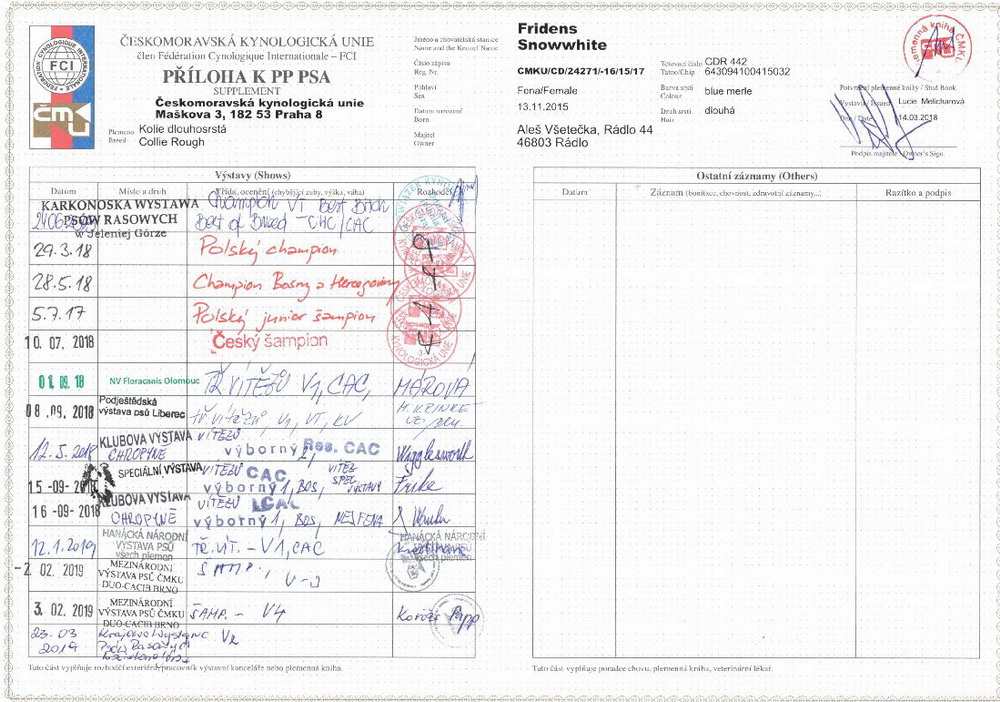 ČESKOMORAVSKÁ KYNOLOGICKÁ UNIE
člen Fédération Cynologique Internationale – FCI
PŘÍLOHA K PP PSA
SUPPLEMENT
Českomoravská kynologická unie
Maškova 3, 182 53 Praha 8
Plemeno
Breed
Kolie dlouhosrstá
Collie Rough
FCI
ČMKU
Jméno a chovatelská stanice
Name and the Kennel Name
Fridens
Snowwhite
Číslo zápisu
Reg. Nr.
CMKU/CD/24271/-16/15/17
Tetovací číslo
Tatoo/Chip
CDR 442
643094100415032
Pohlaví
Sex
Fena/Female
Barva srsti
Colour
blue merle
Datum narození
Born
13.11.2015
Druh srsti
Hair
dlouhá
Majitel
Owner
Aleš Všetečka, Rádlo 44
46803 Rádlo
Potvrzení plemenné knihy / Stud Book
Vystavil / Issued Lucie Melicharová
Dne / Date 14.03.2018
Podpis majitele / Owner's Sign.
Výstavy (Shows)
Datum Místo a druh Třída, ocenění (chybějící zuby, výška, váha) Rozhodčí
KARKONOSKA WYSTAWA
PSÓW RASOWYCH
w Jeleniej Górze
Champion V1 Best Bitch
Best of Breed - CAC/CAC
29.3.18 Polský champion
28.5.18 Champion Bosny a Hercegoviny
5.7.17 Polský junior šampion
10. 07. 2018 Český šampion
01. 09. 18 NV Floracanis Olomouc TŘ. VÍTĚZŮ V1, CAC, MÁROVÁ
08. 09. 2018 Podještědská
výstava psů Liberec tř. vítězů, V1, VT, KV
12.5.2018 KLUBOVÁ VÝSTAVA
CHROPYNĚ VÍTĚZŮ
výborný 2, Res. CAC Wigglesworth
15 -09- 2018 SPECIÁLNÍ VÝSTAVA VÍTĚZŮ CAC
výborný 1, BOS, VÍTĚZ SPEC. VÝSTAVY
16 -09- 2018 KLUBOVÁ VÝSTAVA
CHROPYNĚ VÍTĚZŮ
výborný 1, BOS,
12.1.2019 HANÁCKÁ NÁRODNÍ
VÝSTAVA PSŮ
všech plemen TŘ. VÍT. - V1, CAC
-2. 02. 2019 MEZINÁRODNÍ
VÝSTAVA PSŮ ČMKU
DUO-CACIB BRNO ŠAMP., V-3
3. 02. 2019 MEZINÁRODNÍ
VÝSTAVA PSŮ ČMKU
DUO-CACIB BRNO ŠAMP. - V4 Korózs Papp
23.03
2019
Tuto část vyplňuje rozhodčí exteriéru/pracovník výstavní kanceláře nebo plemenná kniha.
Ostatní záznamy (Others)
Datum Záznam (bonitace, chovnost, zdravotní záznamy...) Razítko a podpis
Tuto část vyplňuje poradce chovu, plemenná kniha, veterinární lékař.